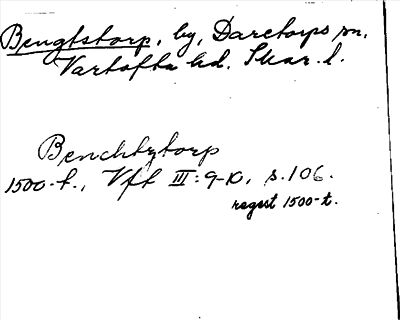 Bengtstorp, by, Daretorps sn.
Vartofta hd. Skar. l.
Benchtztorp
1500-t., Vft III: 9-10, s. 106.
regest 1500-t.